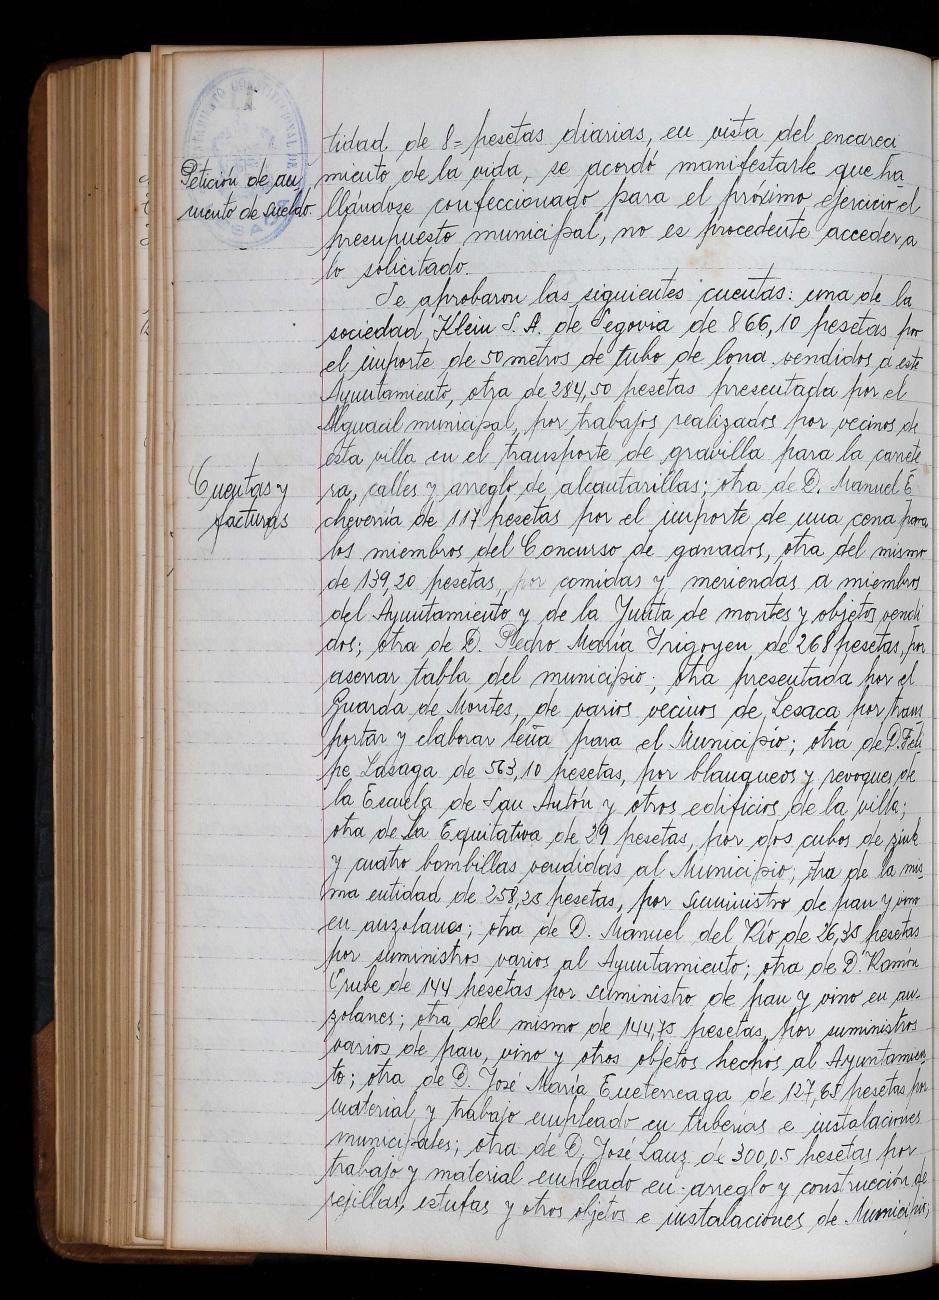 tidad de 8= pesetas diarias, en vista del encareci
Petición de au
mento de sueldo.
miento de la vida, se acordó manifestarle que ha
llándose confeccionado para el próximo ejercicio el
presupuesto municipal, no es procedente acceder a
lo solicitado.
Se aprobaron las siguientes cuentas: una de la
sociedad Klein S. A. de Segovia de 866,10 pesetas por
el importe de 50 metros de tubo de lona vendidos a este
Ayuntamiento, otra de 284,50 pesetas presentada por el
Alguacil municipal, por trabajos realizados por vecinos de
esta villa en el transporte de gravilla para la carrete
Cuentas y
facturas
ra, calles y arreglo de alcantarillas; otra de D. Manuel E
chevería de 117 pesetas por el importe de una cena para
los miembros del Concurso de ganados, otra del mismo
de 139,20 pesetas, por comidas y meriendas a miembros
del Ayuntamiento y de la Junta de montes y objetos vendi
dos; otra de D. Pedro María Irigoyen de 268 pesetas, por
aserrar tabla del municipio; otra presentada por el
Guarda de Montes, de varios vecinos de Lesaca por trans
portar y elaborar leña para el Municipio; otra de D. Feli
pe Lasaga de 563,10 pesetas, por blanqueos y revoques de
la Escuela de San Antón y otros edificios de la villa;
otra de La Equitativa de 29 pesetas, por dos cubos de zink
y cuatro bombillas vendidas al Municipio; otra de la mis
ma entidad de 258,25 pesetas, por suministro de pan y vino
en auzolanes; otra de D. Manuel del Río de 26,35 pesetas
por suministros varios al Ayuntamiento; otra de D. Ramón
de 144 pesetas por suministro de pan y vino en au-
zolanes; otra del mismo de 144,75 pesetas, por suministros
varios de pan, vino y otros objetos hechos al Ayuntamien
to; otra de D. José María de 127,65 pesetas por
material y trabajo empleado en tuberías e instalaciones
municipales; otra de D. José Lanz de 300,05 pesetas por
trabajo y material empleado en arreglo y construcción de
rejillas, estufas y otros objetos e instalaciones de Municipio;